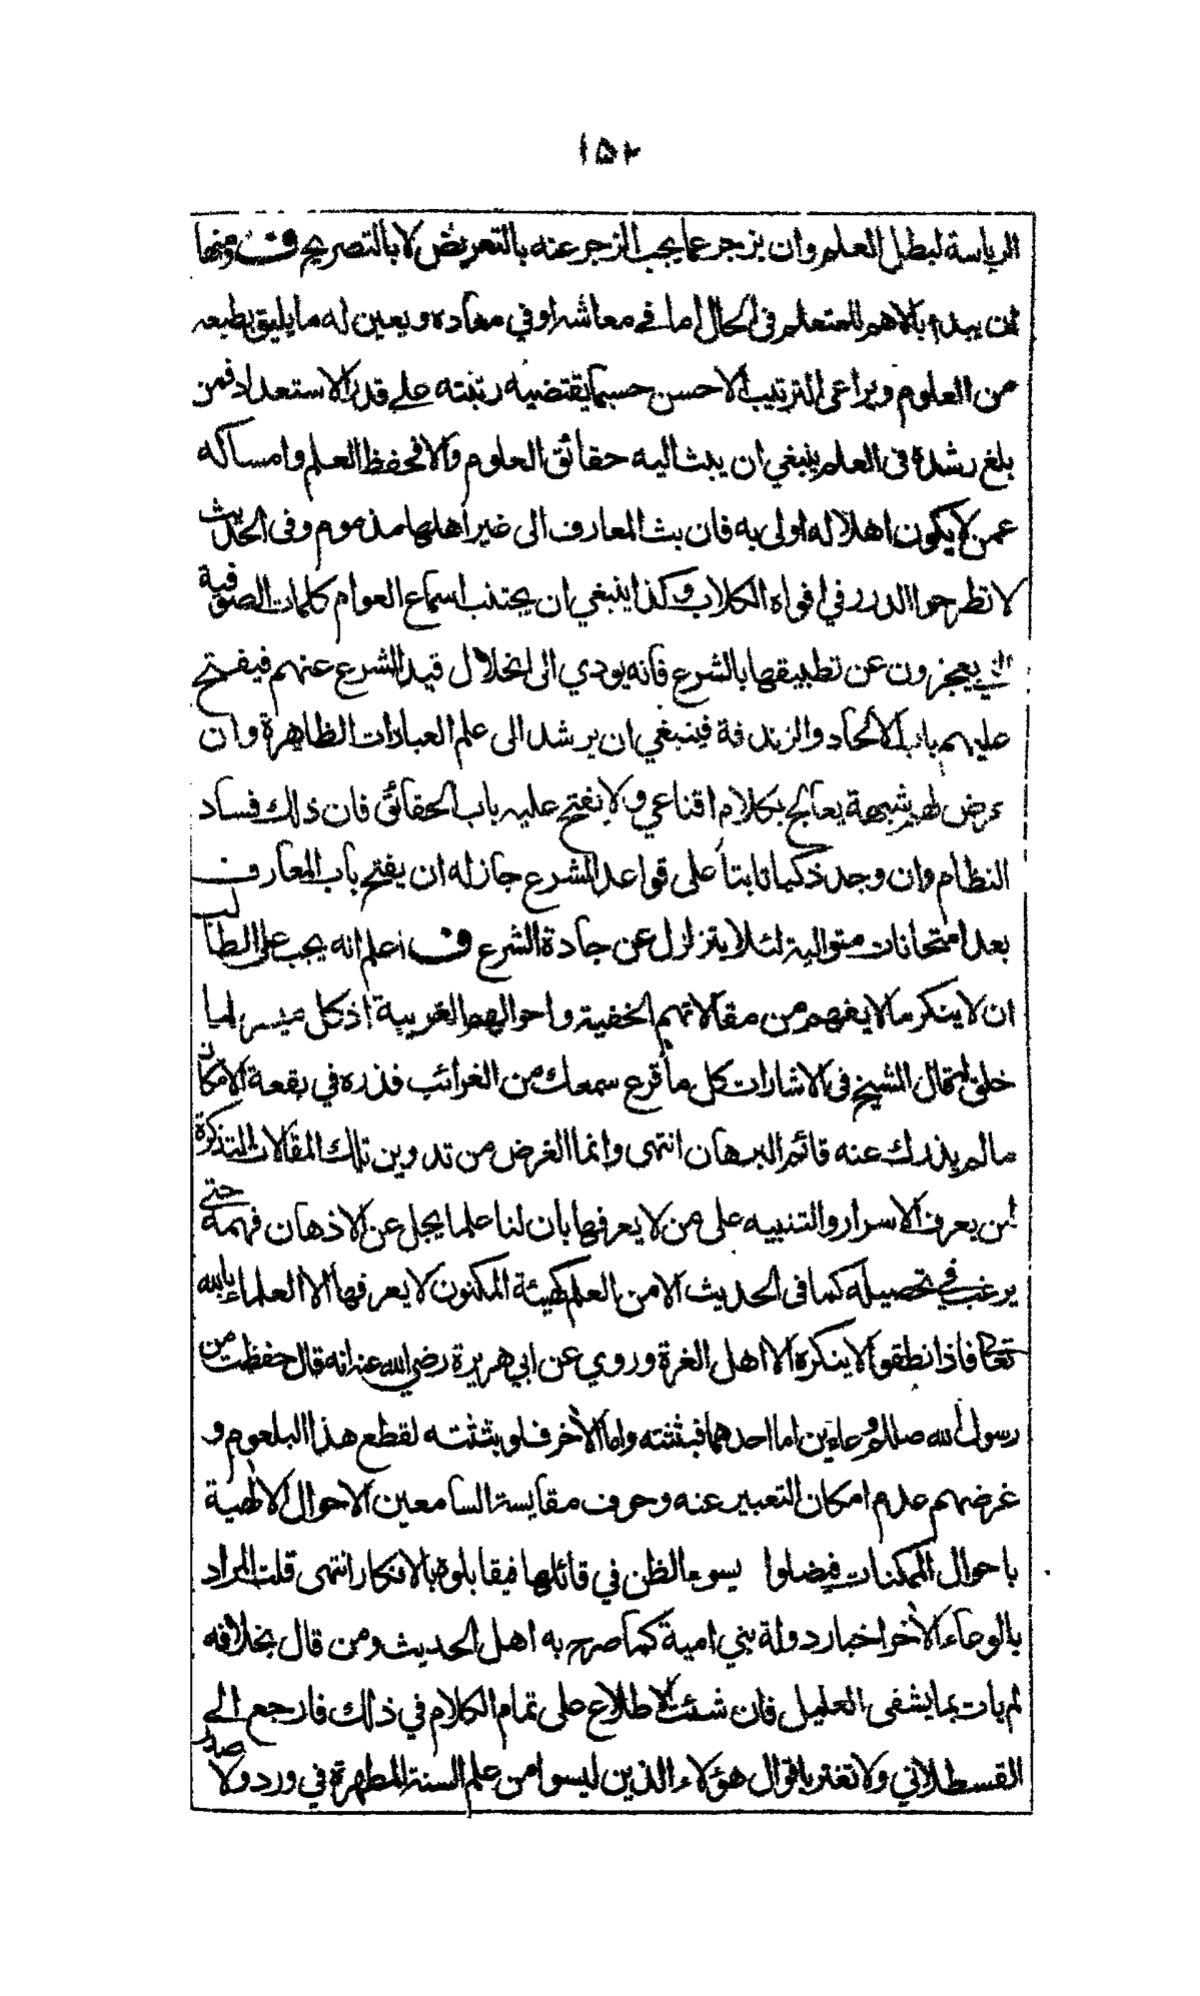 ١٥٢
الرياسة لبطل العلم وان يزجر عما يجب الزجر عنه بالتعريض لا بالتصريح ف ومنها
ان يبدء بالاهم للمتعلم فى الحال اما فے معاشه او في معاده ويعين له ما يليق بطبعه
من العلوم ويراعى الترتيب الاحسن حسبما يقتضيه رتبته علے قدر الاستعداد فمن
بلغ رشده فى العلم ينبغي ان يبث اليه حقائق العلوم والا فحفظ العلم وامساكه
عمن لا يكون اهلا له اولى به فان بث المعارف الى غير اهلها مذموم وفى الحديث
لا تطرحوا الدرر في افواه الكلاب وكذا ينبغي ان يجتنب اسماع العوام كلمات الصوفية
التي يعجزون عن تطبيقها بالشرع فانه يودي الى انحلال قيد الشرع عنهم فيفتح
عليهم باب الالحاد والزندقة فينبغي ان يرشد الى علم العبادات الظاهرة وان
عرض لهم شبهة يعالج بكلام اقناعي ولا يفتح عليه باب الحقائق فان ذلك فساد
النظام وان وجد ذكيا ثابتا على قواعد الشرع جاز له ان يفتح باب المعارف
بعد امتحانات متوالية لئلا يتزلزل عن جادة الشرع ف اعلم انه يجب على الطالب
ان لا ينكر ما لا يفهم من مقالاتهم الخفية واحوالهم الغريبة اذ كل ميسر لما
خلق له قال الشيخ فى الاشارات كل ما قرع سمعك من الغرائب فذره في بقعة الامكان
ما لم يذدك عنه قائم البرهان انتهى وانما الغرض من تدوين تلك المقالات التذكرة
لمن يعرف الاسرار والتنبيه على من لا يعرفها بان لنا علما يجل عن الاذهان فهمه حتى
يرغب في تحصيله كما فى الحديث الا من العلم كهيئة المكنون لا يعرفها الا العلماء بالله
تعالى فاذا نطقوا لا ينكره الا اهل الغرة وروي عن ابي هريرة رضي الله عنه انه قال حفظت من
رسول الله صللم وعاءين اما احدهما فبثثته واما الاخر فلو بثثته لقطع هذا البلعوم و
غرضهم عدم امكان التعبير عنه وخوف مقايسة السامعين الاحوال الالهية
باحوال الممكنات فيضلوا يسوء الظن في قائلها فيقابلوه بالانكار انتهى قلت المراد
بالوعاء الاخر اخبار دولة بني امية كما صرح به اهل الحديث ومن قال بخلافه
لم يات بما يشفى العليل فان شئت الاطلاع على تمام الكلام في ذلك فارجع الے
القسطلاني ولا تغتر باقوال هؤلاء الذين ليسوا من علم السنة المطهرة في ورد ولا صدر